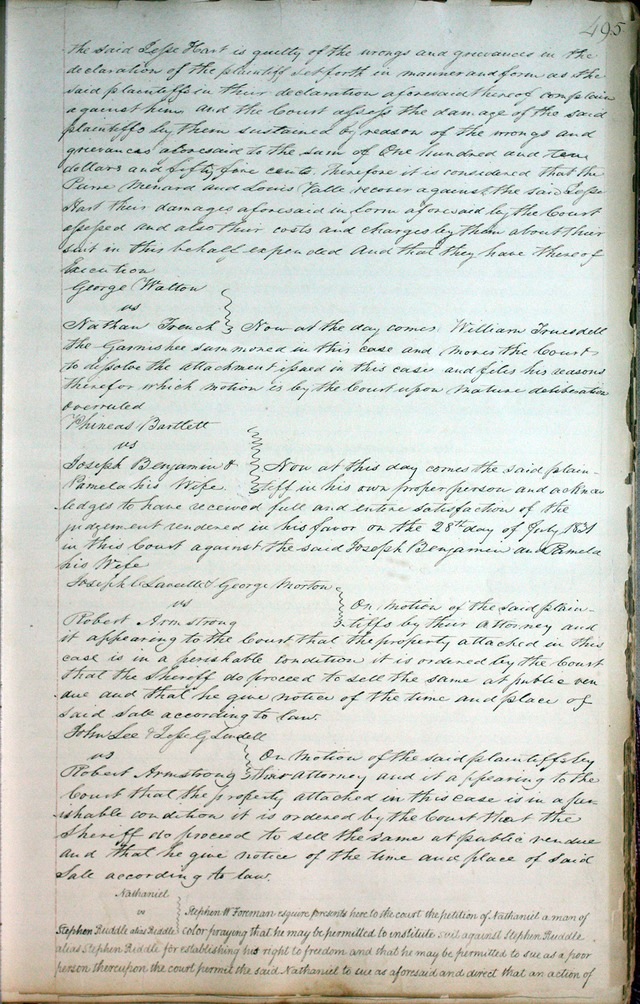 495
the said Jesse Hart is guilty of the wrongs and grievances in the
declaration of the plaintiff set forth in manner and form as the
said plaintiffs in their declaration aforesaid thereof complain
against him and the Court assess the damage of the said
plaintiffs by them sustained by reason of the wrongs and
grievances aforesaid to the sum of One hundred and
dollars and fifty five cents. Therefore it is considered that the
Pierre Menard and Louis Valle recover against the said Jesse
Hart their damages aforesaid in form aforesaid by the Court
assessed and also their costs and charges by them about their
suit in this behalf expended And that they have thereof
Execution
George Walton
vs
Nathan French Now at the day comes William Truesdell
the Garnishee summoned in this case and moves the Court
to dissolve the attachment issued in this case and files his reasons
therefor which motion is by the Court upon mature deliberation
overruled
Phineas Bartlett
vs
Joseph Benjamin & Now at this day comes the said plain-
Pamela his Wife tiff in his own proper person and acknow
ledges to have received full and entire satisfaction of the
judgement rendered in his favor on the 28th day of July 1831
in this Court against the said Joseph Benjamin and Pamela
his Wife
Joseph C Laveille & George Morton
vs On motion of the said plain-
Robert Armstrong tiffs by their Attorney and
it appearing to the Court that the property attached in this
case is in a perishable condition it is ordered by the Court
that the Sheriff do proceed to sell the same at public ven
due and that he give notice of the time and place of
said sale according to law.
John Lee & Jesse G Lindell
vs On motion of the said plaintiffs by
Robert Armstrong their Attorney and it appearing to the
Court that the property attached in this case is in a per
ishable condition it is ordered by the Court that the
Sheriff do proceed to sell the same at public vendue
and that he give notice of the time and place of said
Sale according to law.
Nathaniel
vs Stephen W Foreman esquire presents here to the court the petition of Nathaniel a man of
Stephen Ruddle alias Riddle color praying that he may be permitted to institute suit against Stephen Ruddle
alias Stephen Riddle for establishing his right to freedom and that he may be permitted to sue as a poor
person thereupon the court permit the said Nathaniel to sue as aforesaid and direct that an action of